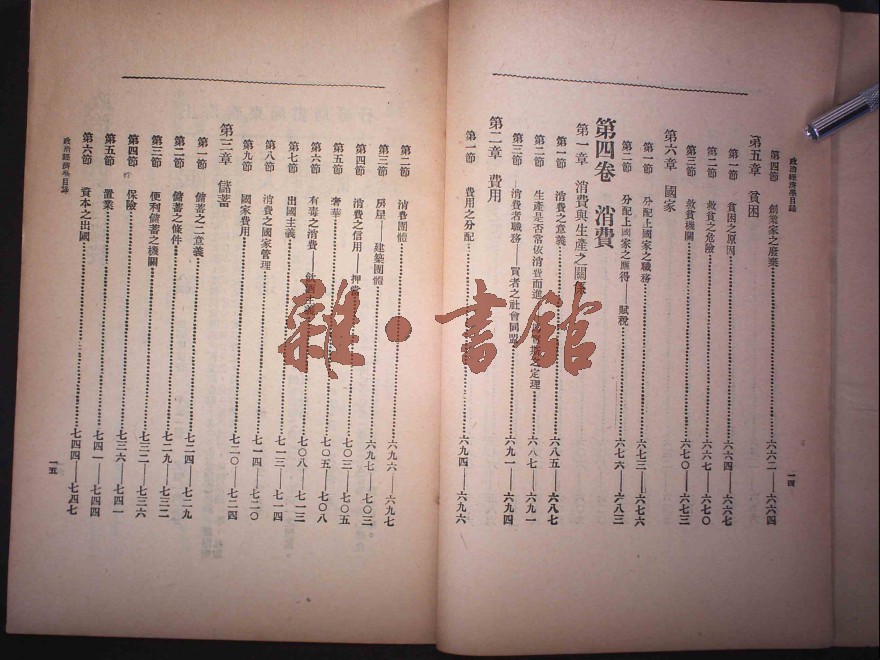 政治經濟學目錄
一四
第四節 創業家之廢棄 六六二——六六四
第五章 貧困
第一節 貧困之原因 六六四——六六七
第二節 救貧之危險 六六七——六七〇
第三節 救貧機關 六七〇——六七三
第六章 國家
第一節 分配上國家之職務 六七三——六七六
第二節 分配上國家之應得——賦稅 六七六——六八三
第四卷 消費
第一章 消費與生產之關係
第一節 消費之意義 六八五——六八七
第二節 生產是否常依消費而進 之定理 六八七——六九一
第三節 消費者職務——買者之社會同盟 六九一——六九四
第二章 費用
第一節 費用之分配 六九四——六九六
第二節 消費團體 六九六——六九七
第三節 房屋——建築團體 六九七——七〇三
第四節 消費之信用——押當 七〇三——七〇五
第五節 奢華 七〇五——七〇八
第六節 有毒之消費——飲酒 七〇八——七一三
第七節 出國主義 七一三——七一四
第八節 消費之國家管理 七一四——七二〇
第九節 國家費用
第三章 儲蓄 七二〇——七二四
第一節 儲蓄之二意義 七二四——七二九
第二節 儲蓄之條件 七二九——七三二
第三節 便利儲蓄之機關 七三二——七三六
第四節 保險 七三六——七四一
第五節 置業 七四一——七四四
第六節 資本之出國 七四四——七四七
政治經濟學目錄
一五
雜·書館